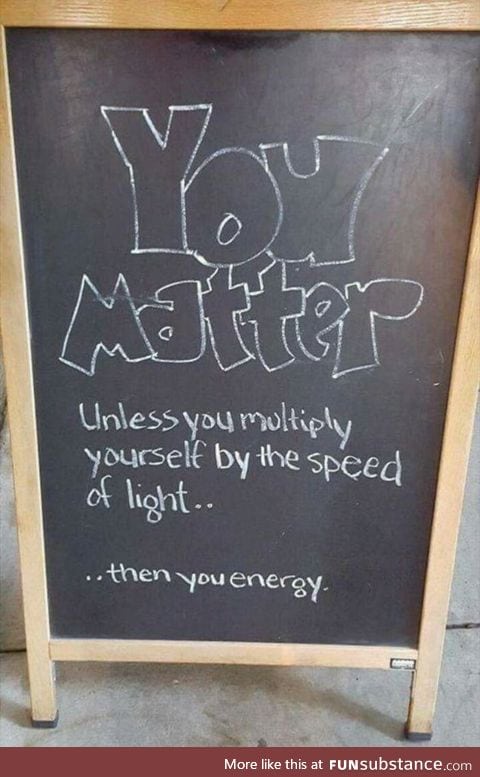 You
Matter
Unless you multiply
yourself by the speed
of light..
..then you energy.
More like this at FUNsubstance.com